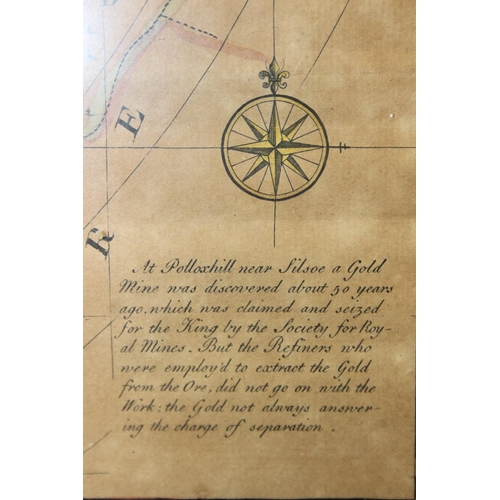 E
R
At Polloxhill near Silsoe a Gold
Mine was discovered about 50 years
ago, which was claimed and seized
for the King by the Society for Roy-
al Mines. But the Refiners who
were employ'd to extract the Gold
from the Ore, did not go on with the
Work: the Gold not always answer-
ing the charge of separation.